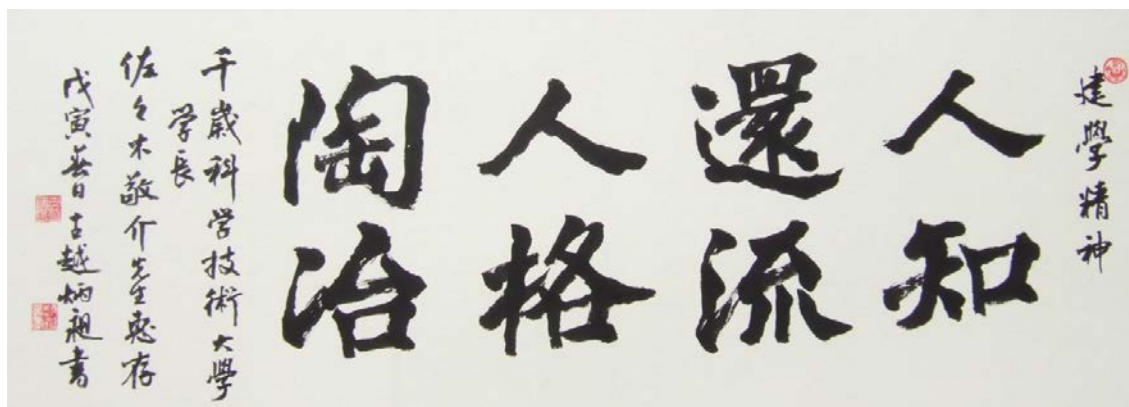 建學精神
人知
還流
人格
陶冶
千歲科学技術大學
学長
佐々木敬介先生惠存
戊寅春日古越炳昶書